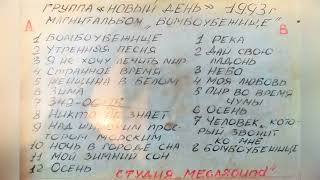 ГРУППА «НОВЫЙ ДЕНЬ» 1993 г.
МАГНИТАЛЬБОМ „БОМБОУБЕЖИЩЕ"
А
В
1 БОМБОУБЕЖИЩЕ
2 УТРЕННЯЯ ПЕСНЯ
3 Я НЕ ХОЧУ ЛЕЧИТЬ МИР
4 СТРАННОЕ ВРЕМЯ
5 ЖЕНЩИНА В БЕЛОМ
6 ЗИМА
7 ЭЙ2-
8 НИКТО НЕ ЗНАЕТ
9 НАД ПРОС-
ТОРОМ МОРСКИМ
10 НОЧЬ В ГОРОДЕ СНА
11 МОЙ ЗИМНИЙ СОН
12 ОСЕНЬ
1 РЕКА
2 ДАЙ СВОЮ
ЛАДОНЬ
3 НЕБО
4 МОЯ ЛЮБОВЬ
5 ПИР ВО ВРЕМЯ
ЧУМЫ
6 ОСЕНЬ
7 ЧЕЛОВЕК, КОТО-
РЫЙ ЗВОНИТ
КО МНЕ
8 БОМБОУБЕЖИЩЕ
СТУДИЯ „MEGAROUND"